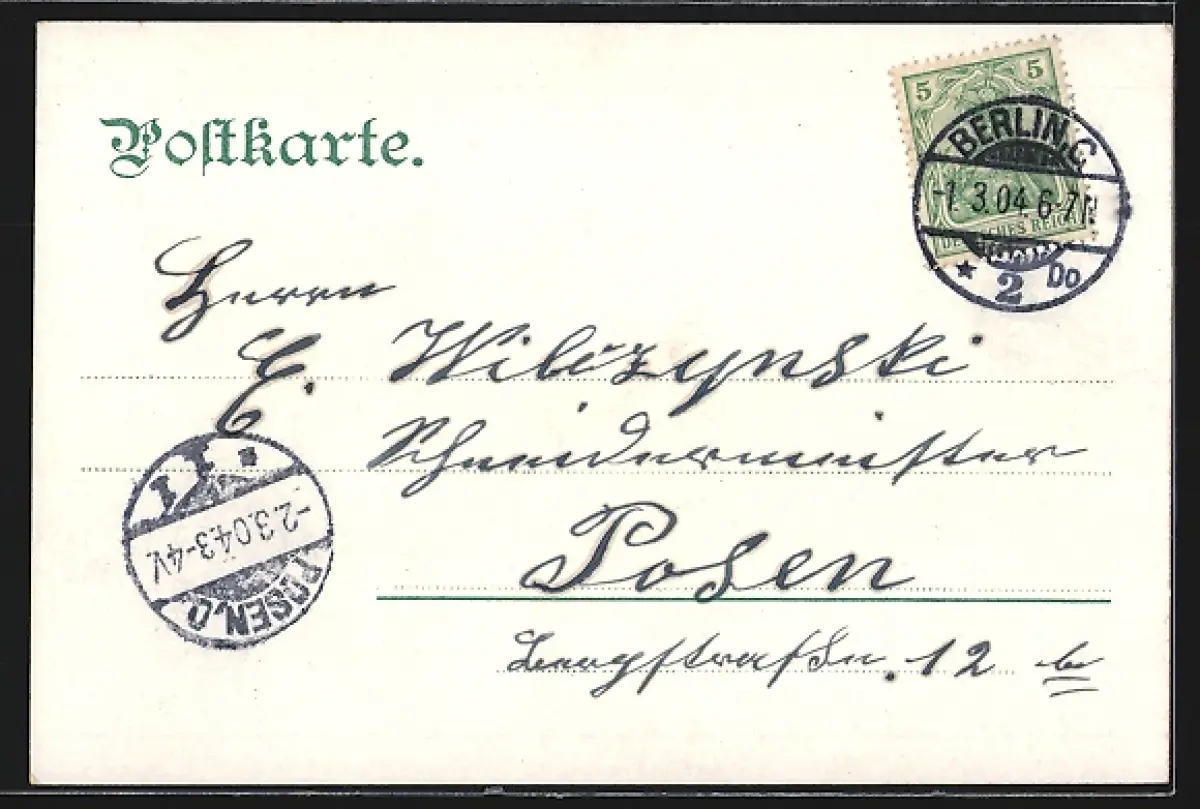 Postkarte.
5 5
DEUTSCHES REICH
BERLIN, C.
-1.3.04. 6-7N
* 2 Do
Herrn
E. Wilczynski
Schneidermeister
Posen
Bergstraße. 12 b
POSEN. O
-2.3.04.3-4V.
* 1